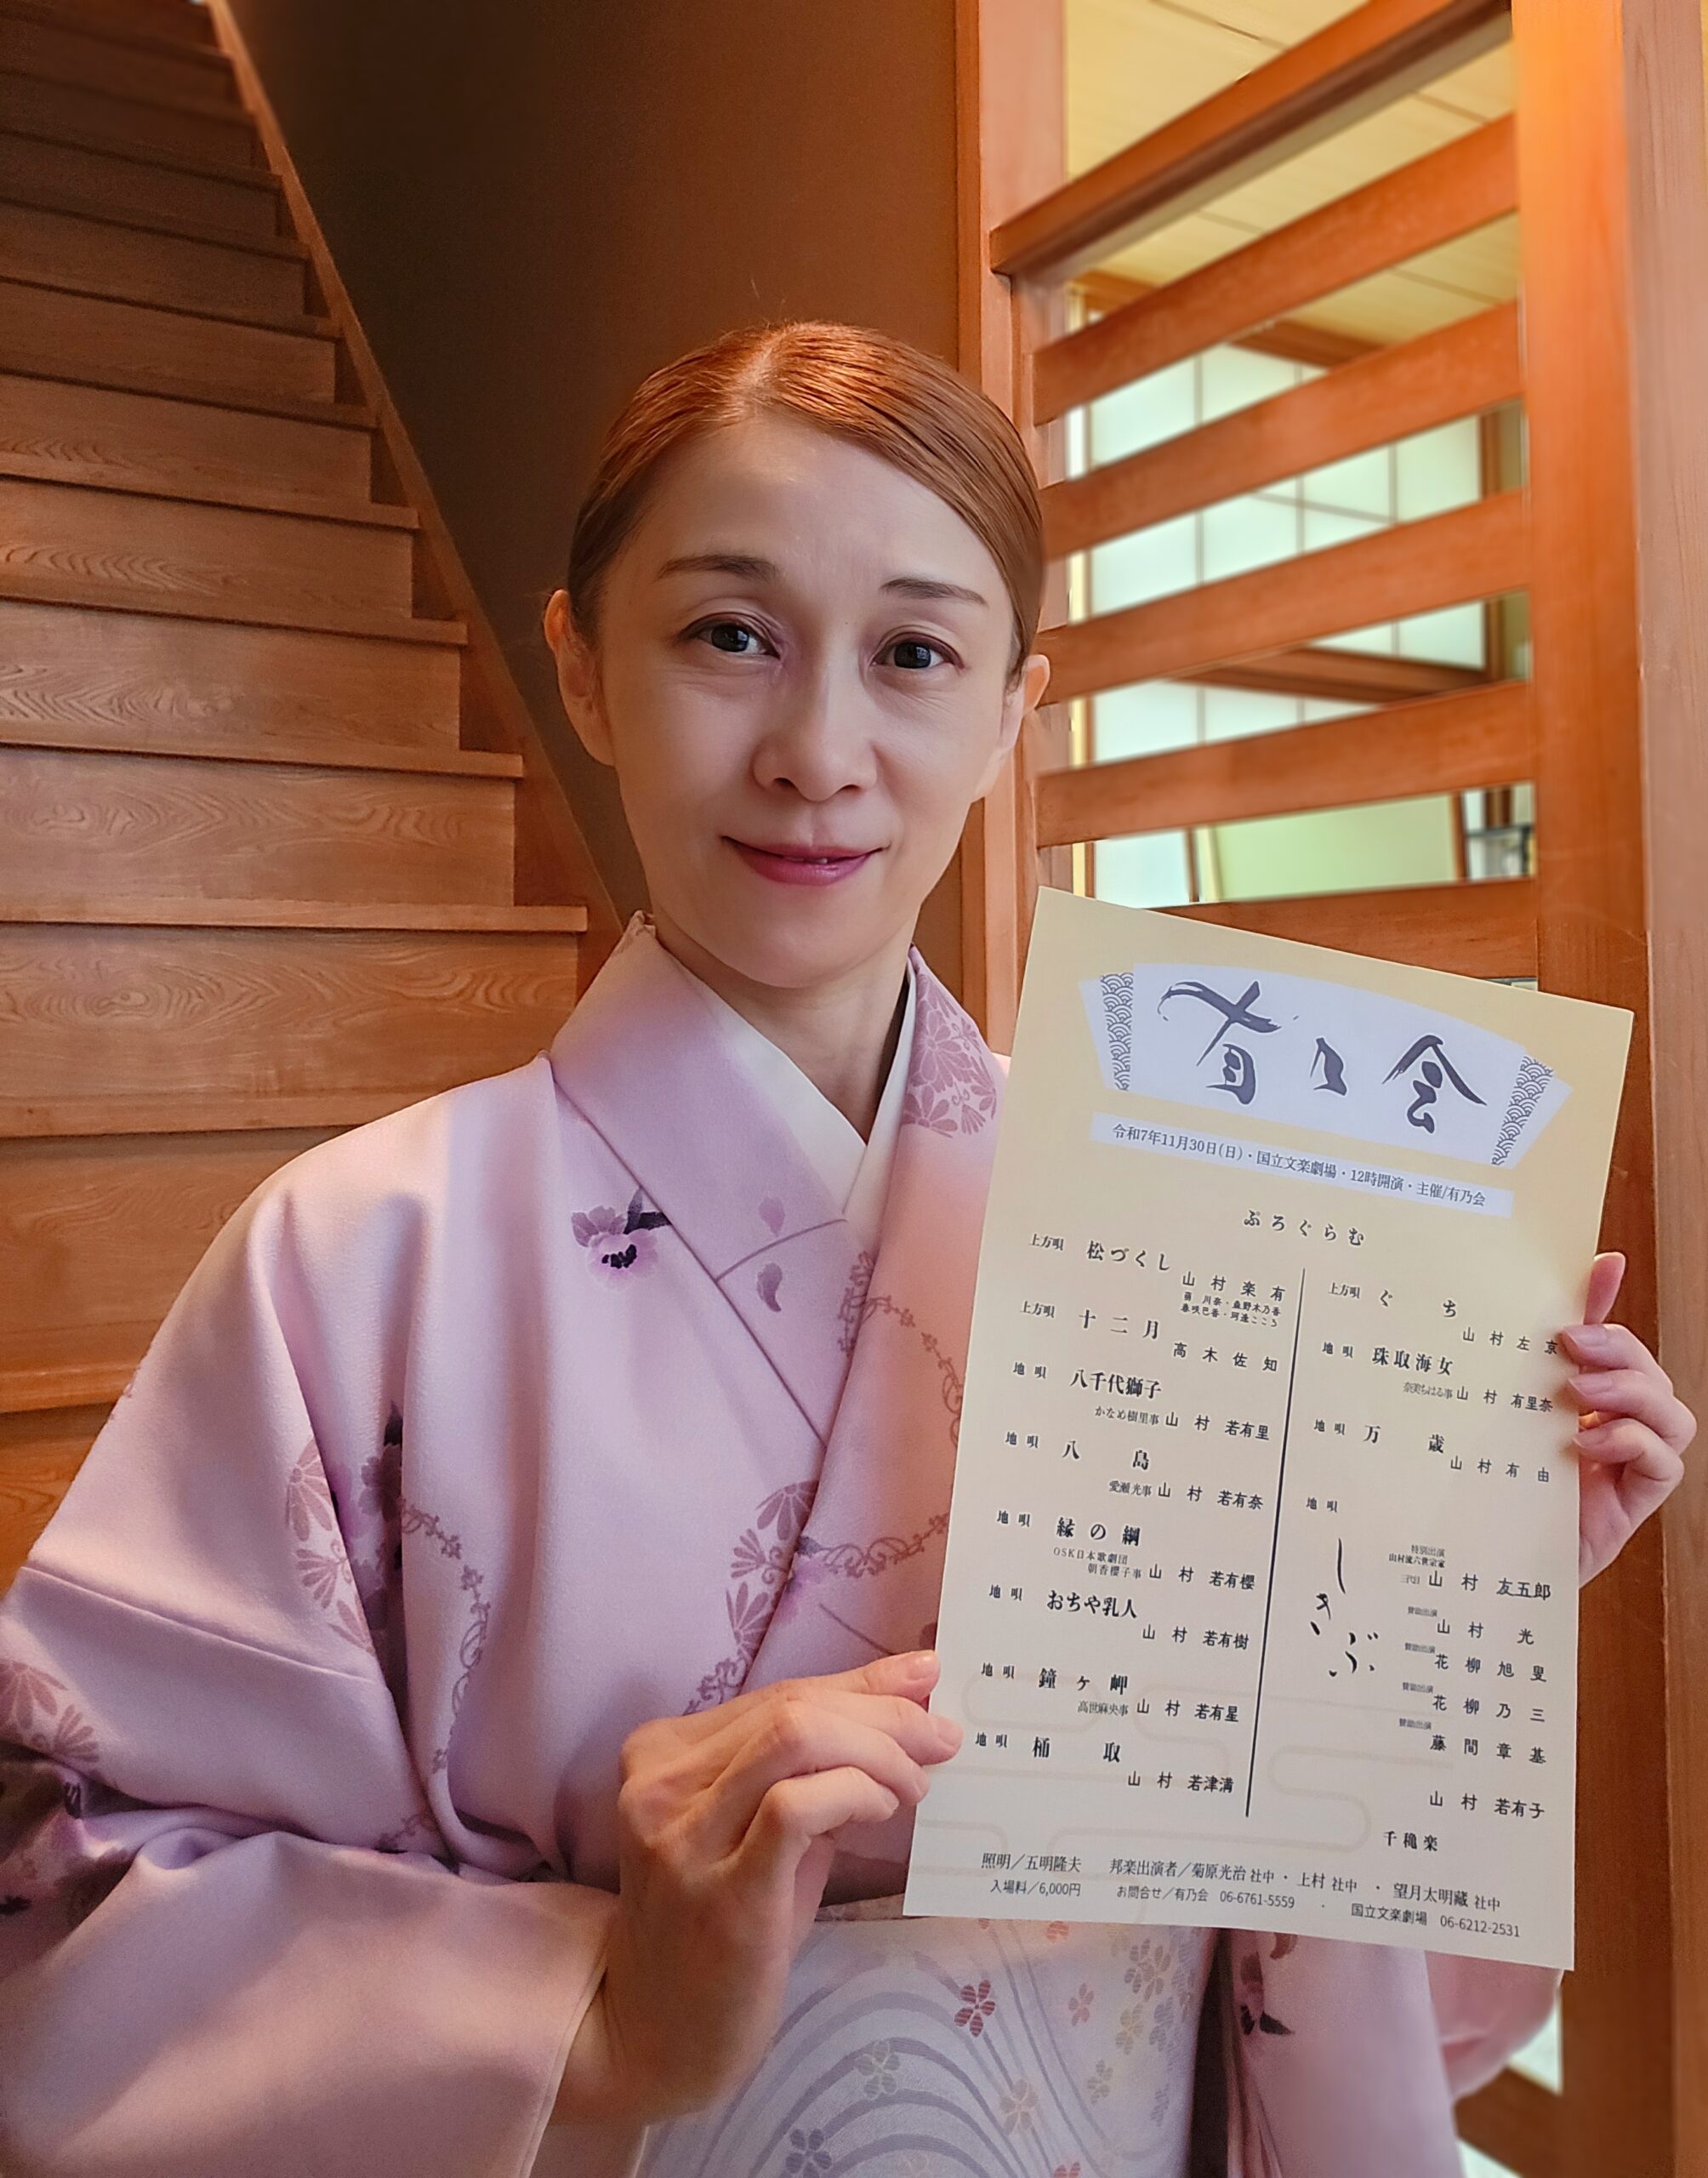 有乃会
令和7年11月30日(日)・国立文楽劇場・12時開演・主催/有乃会
ぷろぐらむ
上方唄 松づくし
山村楽有
上方唄 十二月
高木佐知
地唄 八千代獅子
かなめ樹里事 山村若有里
地唄 八島
愛瀬光事 山村若有奈
地唄 縁の綱
OSK日本歌劇団
朝香櫻子事 山村若有櫻
地唄 おちや乳人
山村若有樹
地唄 鐘ヶ岬
高世麻央事 山村若有星
地唄 桶取
山村若津満
上方唄 ぐち
山村左京
地唄 珠取海女
奈美ちはる事 山村有里奈
地唄 万歳
山村有由
地唄
しきぶ
特別出演
山村流六世宗家
三代目 山村友五郎
賛助出演
山村光
賛助出演
花柳旭叟
賛助出演
花柳乃三
賛助出演
藤間章基
山村若有子
千穐楽
照明／五明隆夫 邦楽出演者／菊原光治 社中・上村 社中・望月太明藏 社中
入場料／6,000円 お問合せ／有乃会 06-6761-5559 ・ 国立文楽劇場 06-6212-2531